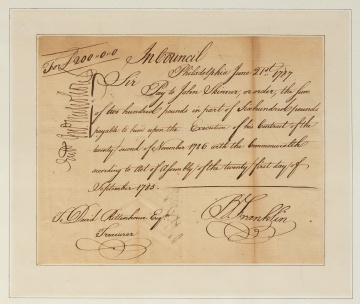 For £200=0=0
In Council
Philadelphia June 21st 1787
Sir
Pay to John Skinner, or order, the sum
of two hundred pounds in part of Six hundred pounds
payable to him upon the Execution of his Contract of the
twenty second of November 1786 with the Commonwealth
according to Act of Assembly of the twenty first day of
September 1785.
To David Rittenhouse Esqr.
Treasurer
B Franklin